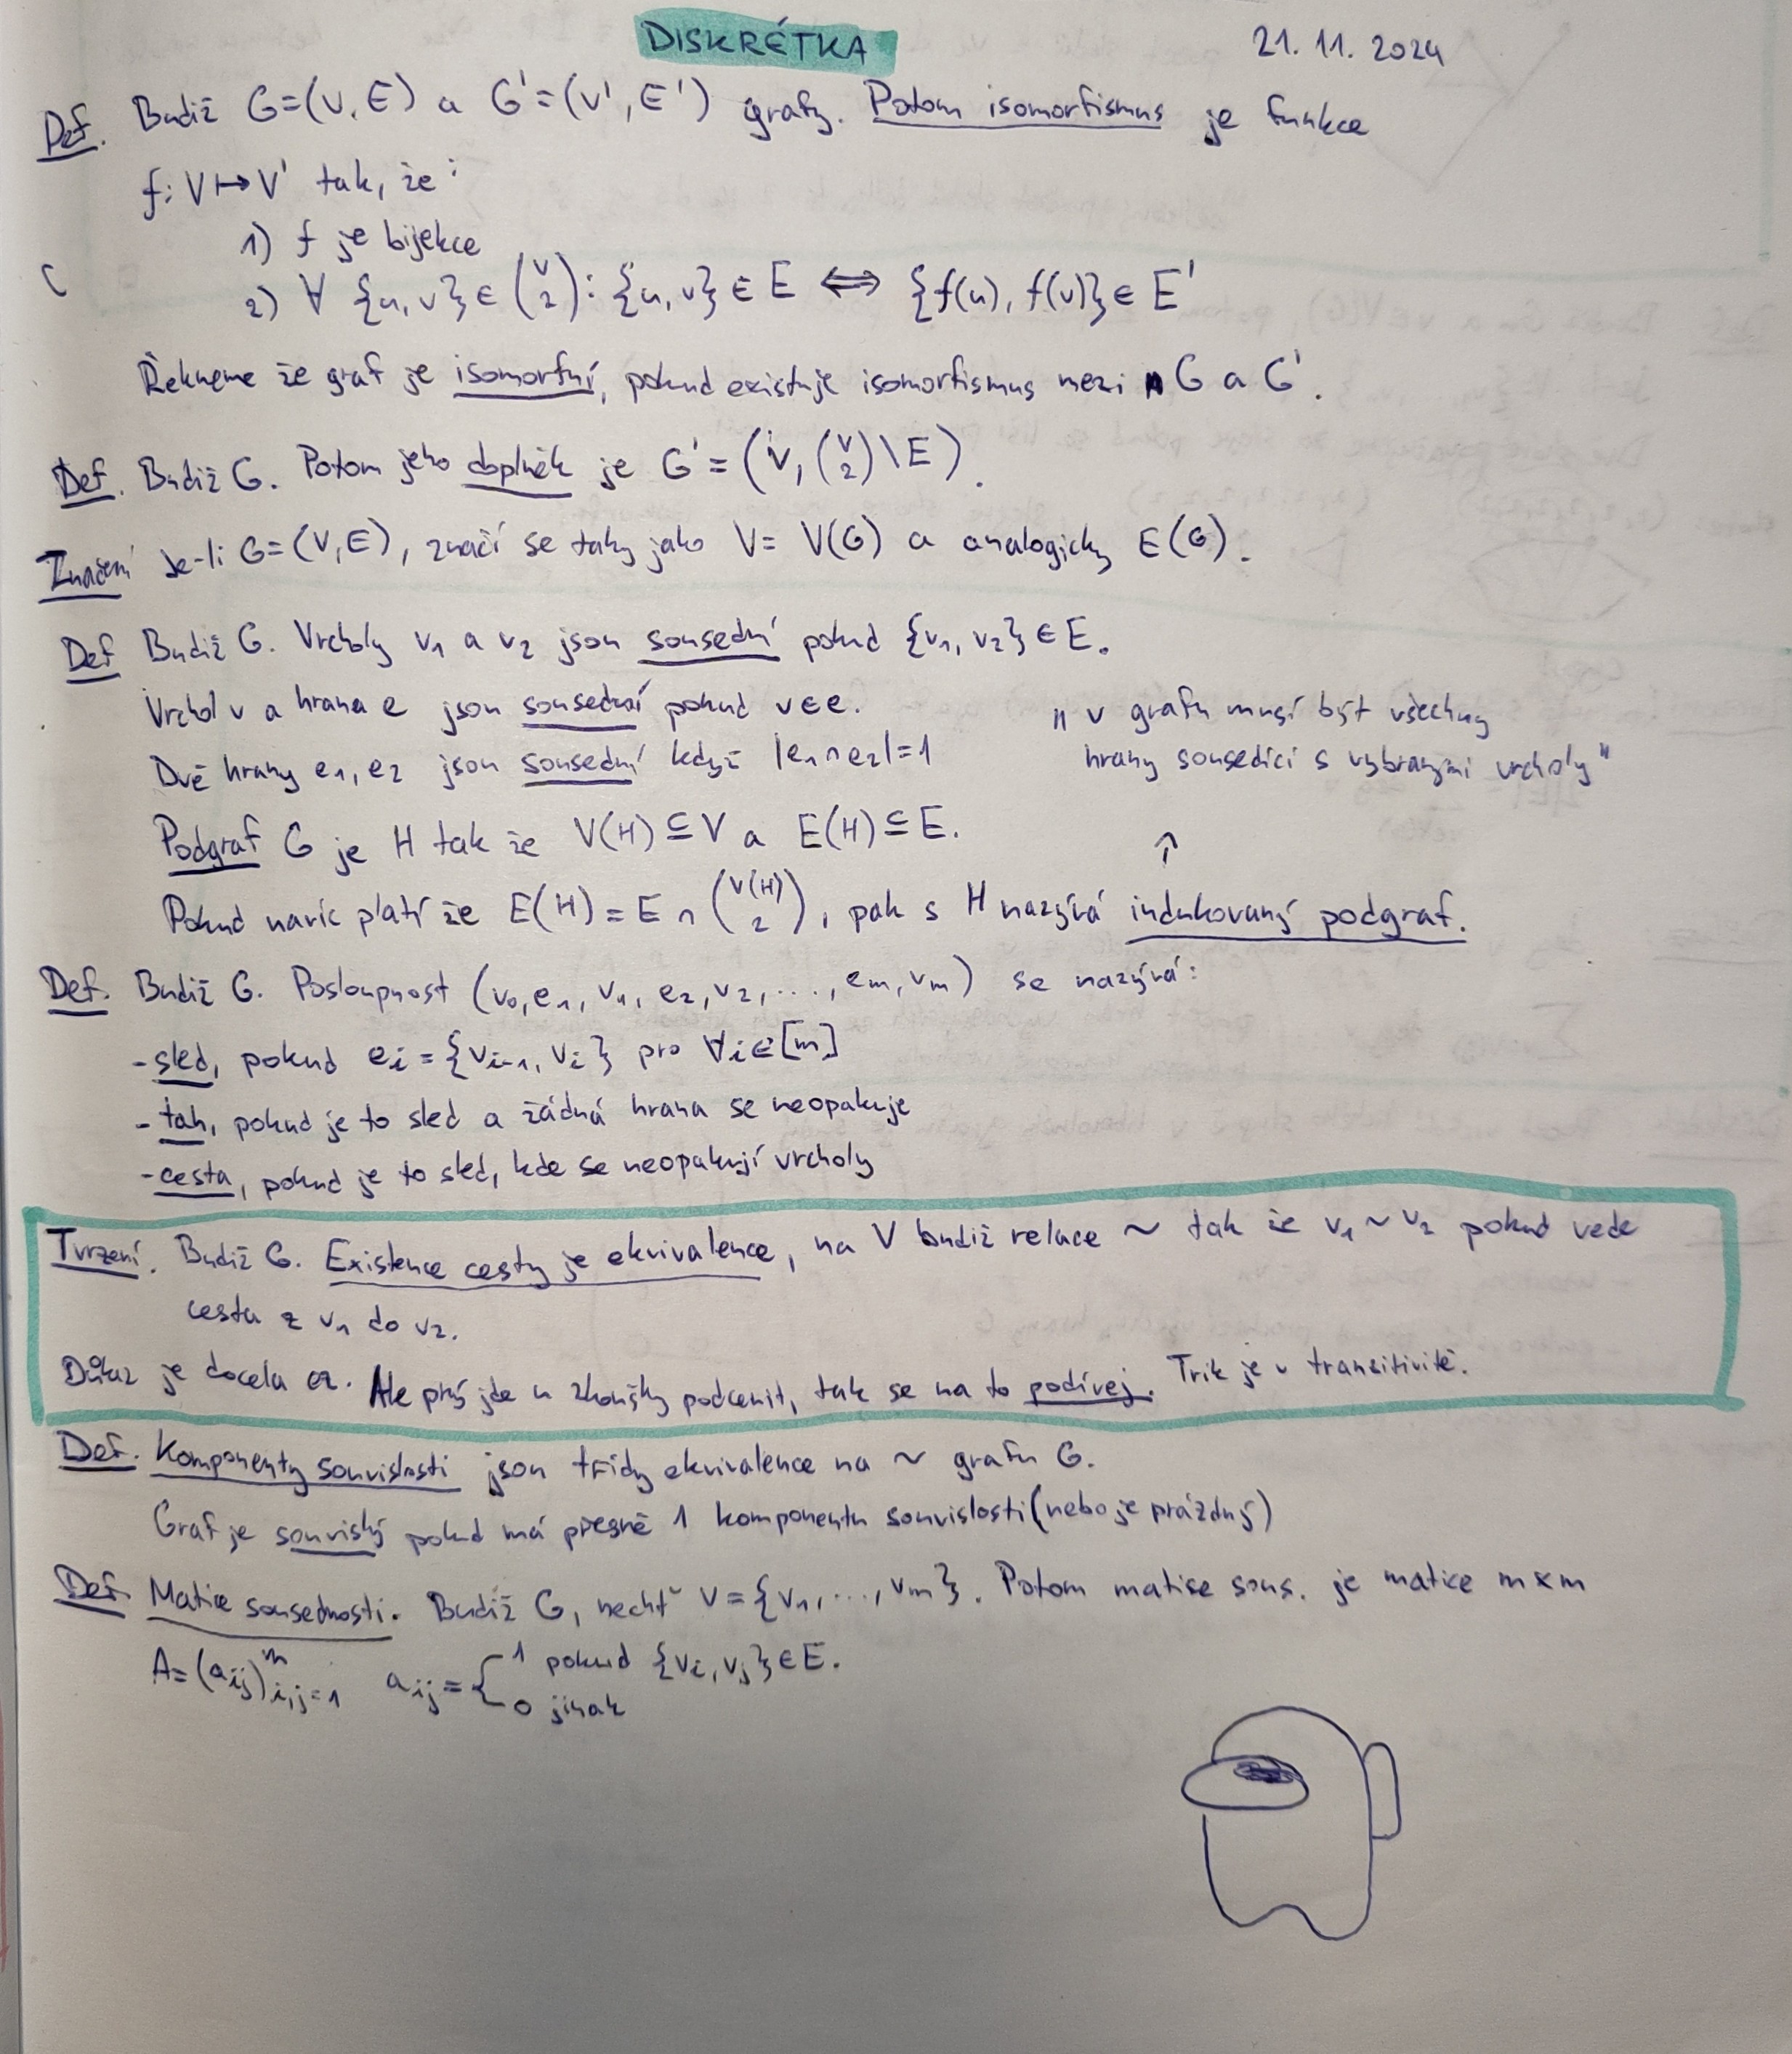 DISKRÉTKA
21. 11. 2024
Def. Budiž G=(V,E) a G'=(V',E') grafy. Potom isomorfismus je funkce
f: V ↦ V' tak, že:
1) f je bijekce
2) ∀ {u,v} ∈ (V 2): {u,v} ∈ E ⟺ {f(u), f(v)} ∈ E'
Řekneme že graf je isomorfní, pokud existuje isomorfismus mezi G a G'.
Def. Budiž G. Potom jeho doplněk je G' = (V, (V 2) \ E).
Značení Je-li G=(V,E), značí se taky jako V = V(G) a analogicky E(G).
Def Budiž G. Vrcholy v₁ a v₂ jsou sousední pokud {v₁, v₂} ∈ E.
Vrchol v a hrana e jsou sousední pokud v∈e.
Dvě hrany e₁, e₂ jsou sousední když |e₁∩e₂|=1
„ v grafu musí být všechny
hrany sousedící s vybranými vrcholy "
Podgraf G je H tak že V(H) ⊆ V a E(H) ⊆ E.
↑
Pokud navíc platí že E(H) = E ∩ (V(H) 2), pak s H nazývá indukovaný podgraf.
Def. Budiž G. Posloupnost (v₀, e₁, v₁, e₂, v₂, ..., eₘ, vₘ) se nazývá:
- sled, pokud eᵢ = {vᵢ₋₁, vᵢ} pro ∀i∈[m]
- tah, pokud je to sled a žádná hrana se neopakuje
- cesta, pokud je to sled, kde se neopakují vrcholy
Tvrzení. Budiž G. Existence cesty je ekvivalence, na V budiž relace ~ tak že v₁ ~ v₂ pokud vede
cesta z v₁ do v₂.
Důkaz je docela ez. Ale prý jde u zkoušky podcenit, tak se na to podívej. Trik je v transitivitě.
Def. Komponenty souvislosti jsou třídy ekvivalence na ~ grafu G.
Graf je souvislý pokud má přesně 1 komponentu souvislosti (nebo je prázdný)
Def. Matice sousednosti. Budiž G, nechť V={v₁, ..., vₘ}. Potom matise sous. je matice m×m
A=(aᵢⱼ)ᵐᵢ,ⱼ₌₁ aᵢⱼ = { 1 pokud {vᵢ, vⱼ} ∈ E.
0 jinak